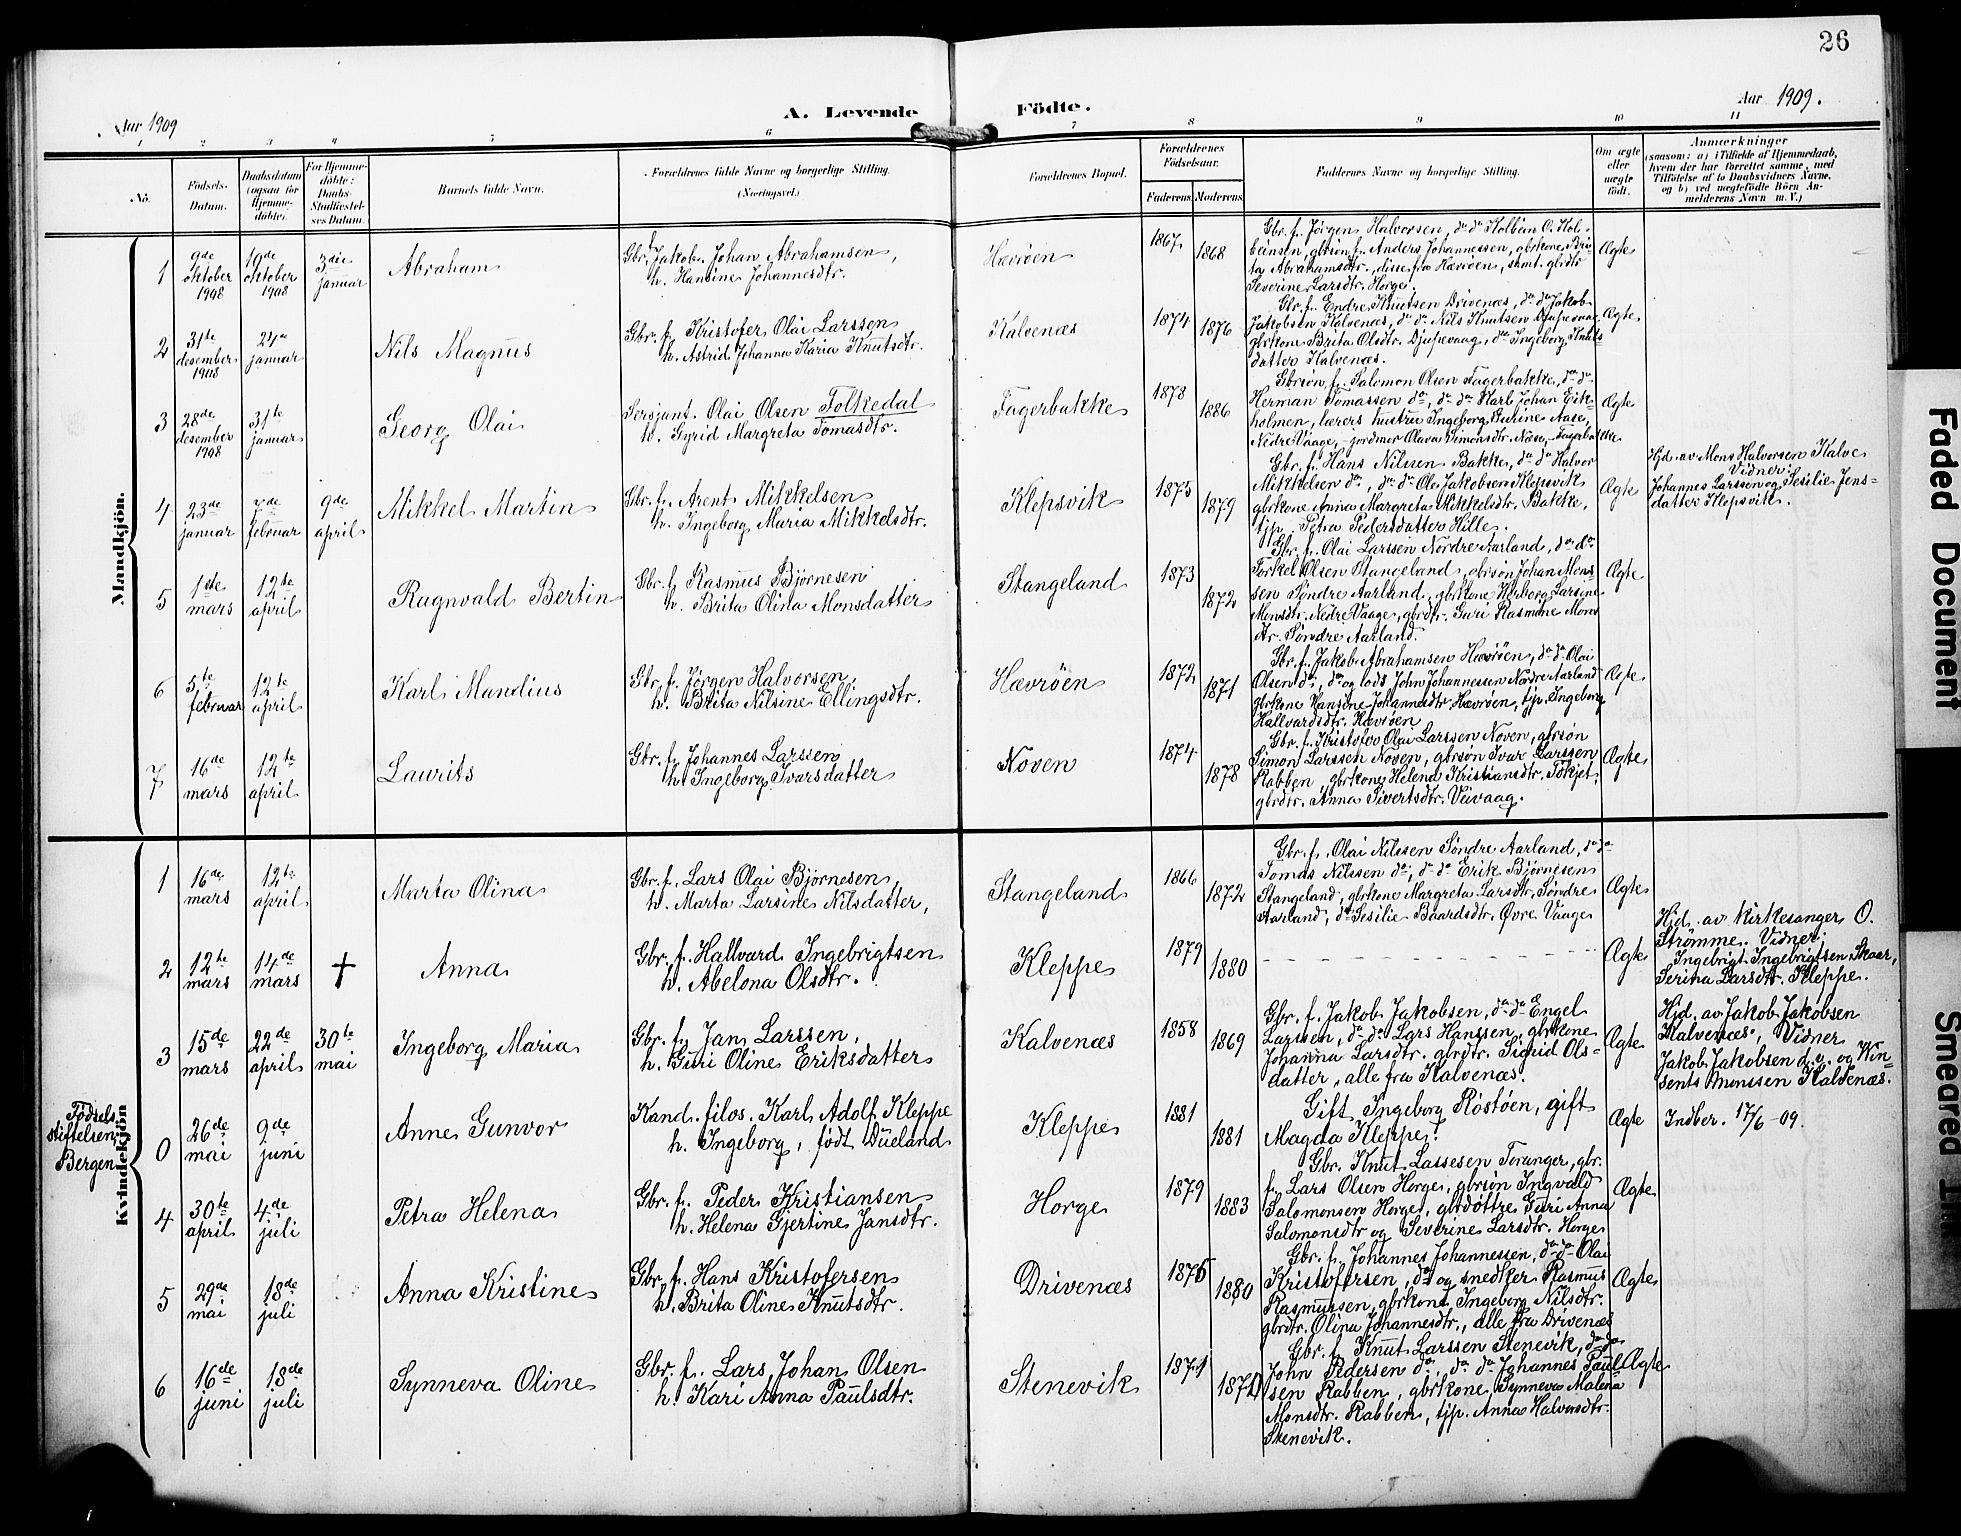 26
Aar 1909
A. Levende
Födte.
Aar 1909.
1 2 3 4 5 6 7 8 9 10 11
No.
Födsels-
Datum.
Daabsdatum
(ogsaa for
Hjemme-
döbte).
For Hjemme-
döbte:
Daabs-
Stadfæstel-
ses Datum.
Barnets fulde Navn.
Forældrenes fulde Navne og borgerlige Stilling.
(Næringsvei.)
Forældrenes Bopæl.
Forældrenes
Födselsaar.
Faderens Moderens
Faddernes Navne og borgerlige Stilling.
Om ægte
eller
uægte
født.
Anmærkninger
(saasom: a) i Tilfælde af Hjemmedaab,
hvem der har forrettet samme, med
Tilföielse af to Daabsvidners Navne,
og b) ved uægtefödte Börn An-
melderens Navn m. V.)
Mandkjön.
1
9de
oktober
1908
19de
oktober
1908
3die
januar
Abraham
Gbr. f. Jakob Johan Abrahamsen,
h. Hansine Johannesdtr.
Hævröen
1867
1868
Gbr. f. Jörgen Halvorsen, do do Kolbein O. Kol-
beinsen, gbrsön f. Anders Johannessen, gbrkone Bri-
ta Abrahamsdtr., disse fra Hævröen, samt gbrdtr.
Severine Larsdtr. Horge.
Ægte
2
31te
desember
1908
24de
januar
Nils Magnus
Gbr. f. Kristofer Olai Larssen
h. Astrid Johanna Karia Knutsdtr.
Kalvenæs
1874
1876
Gbr. f. Endre Knutsen Drivenæs, do do Jakob
Jakobsen Kalvenæs, do do Nils Knutsen Djupevaag
gbrkone Brita Olsdtr. Djupevaag, do Ingeborg Knuts-
datter Kalvenæs.
Ægte
3
28de
desember
1908
31te
januar
Georg Olai
Sersjant Olai Olsen Folkedal
h. Gyrid Margreta Tomasdtr.
Fagerbakke
1878
1886
Gbrsön f. Salomon Olsen Fagerbakke, do do
Herman Tomassen do, do do Karl Johan Eik-
holmen, lærers hustru Ingeborg Aase,
Nedre Vaage, jordmor Olava Simonsdtr. Nöse, Fagerbakke
Ægte
4
23de
januar
7de
februar
9de
april
Mikkel Martin
Gbr. f. Arent Mikkelsen
h. Ingeborg Maria Mikkelsdtr.
Klepsvik
1875
1879
Gbr. f. Hans Nilssen Bakke, do do Halvor
Mikkelsen do, do do Ole Jakobsen Klepsvik
gbrkone Anna Margreta Mikkelsdtr. Bakke,
tjp. Petra Pedersdatter Hille.
Ægte
Hjd. av Mons Halvorsen Kalve
Vidner:
Johannes Larssen og Sesilie Jens-
datter Klepsvik.
5
1ste
mars
12te
april
Ragnvald Bertin
Gbr. f. Rasmus Björnesen
h. Brita Olina Monsdatter
Stangeland
1873
1872
Gbr. f. Olai Larssen Nordre Aarland, do do
Torkel Olsen Stangeland, gbrsön Johan Mons-
sen Söndre Aarland, gbrkone Herborg Larsine
Monsdtr. Nedre Vaage, gbrdtr. Guri Rasmine Mons-
dtr. Söndre Aarland.
Ægte
6
5te
februar
12te
april
Karl Mandius
Gbr. f. Jörgen Halvorsen,
h. Brita Nilsine Ellingsdtr.
Hævröen
1872
1871
Gbr. f. Jakob Abrahamsen Hævröen, do do Olai
Olsen do, do og lods John Johannessen Nordre Aarland
gbrkone Hansine Johannesdtr. Hævröen, tjp. Ingeborg
Hallvardsdtr. Hævröen
Ægte
7
16de
mars
12te
april
Laurits
Gbr. f. Johannes Larssen
h. Ingeborg Ivarsdatter
Noven
1874
1878
Gbr. f. Kristofer Olai Larssen Noven, gbrsön
Simon Larssen Noven, gbrsön Ivar Larssen
Rabben, gbrkone Helena Kristiansdtr. Tökjet,
gbrdtr. Anna Sivertsdtr. Veivaag.
Ægte
Kvindekjön
1
16de
mars
12te
april
Marta Olina
Gbr. f. Lars Olai Björnesen,
h. Marta Larsine Nilsdatter,
Stangeland
1866
1872
Gbr. f. Olai Nilssen Söndre Aarland, do do
Tomas Nilssen do, do do Erik Björnesen
Stangeland, gbrkone Margreta Larsdtr. Söndre
Aarland, do Sesilie Baardsdtr. Övre Vaage
Ægte
2
12te
mars
14de
mars
†
Anna
Gbr. f. Hallvard Ingebrigtsen
h. Abelona Olsdtr.
Kleppe
1879
1880
Ægte
Hjd. av kirkesanger O.
Strömme. Vidner:
Ingebrigt Ingebrigtsen Skaar,
Serina Larsdtr. Kleppe.
3
15de
mars
22de
april
30te
mai
Ingeborg Maria
Gbr. f. Jan Larssen,
h. Guri Oline Eriksdatter
Kalvenæs
1858
1869
Gbr. f. Jakob Jakobsen, do do Engel
Larssen, do do Lars Hanssen, gbrkone
Johanna Larsdtr. gbrdtr. Sigrid Ols-
datter, alle fra Kalvenæs.
Ægte
Hjd. av Jakob Jakobsen
Kalvenæs, Vidner
Jakob Jakobsen d.y. og Vin-
sents Monssen Kalvenæs.
Födsels-
stiftelsen,
Bergen
0
26de
mai
9de
juni
Anne Gunvor
Kand. filos. Karl Adolf Kleppe
h. Ingeborg, født Düeland
Kleppe
1881
1881
Gift Ingeborg Röstöen, gift
Magda Kleppe.
Ægte
Indber. 17/6-09.
4
30te
april
4de
juli
Petra Helena
Gbr. f. Peder Kristiansen
h. Helena Gjertine Jansdtr.
Horge
1879
1883
Gbr. Knut Lassesen Toranger, gbr.
f. Lars Olsen Horge, gbrsön Ingvald
Salomonsen Horge, gbrdöttre Guri Anna
Salomonsdtr og Severine Larsdtr. Horge
Ægte
5
29de
mai
18de
juli
Anna Kristine
Gbr. f. Hans Kristofersen
h. Brita Oline Knutsdtr.
Drivenæs
1876
1880
Gbr. f. Johannes Johannessen, do do Olai
Kristofersen, do og snedker Rasmus
Rasmussen, gbrkone Ingeborg Nilsdtr.
gbrdtr. Olina Johannesdtr., alle fra Drivenæs
Ægte
6
16de
juni
18de
juli
Synneva Oline
Gbr. f. Lars Johan Olsen
h. Kari Anna Paulsdtr.
Stenevik
1871
Gbr. f. Knut Larssen Stenevik, do do
John Pedersen do, do do Johannes Paul-
sen Rabben, gbrkone Synneva Malena
Monsdtr. Rabben, tjp. Anna Halvorsdtr.
Stenevik.
Ægte
Faded Document
Smeared Ink